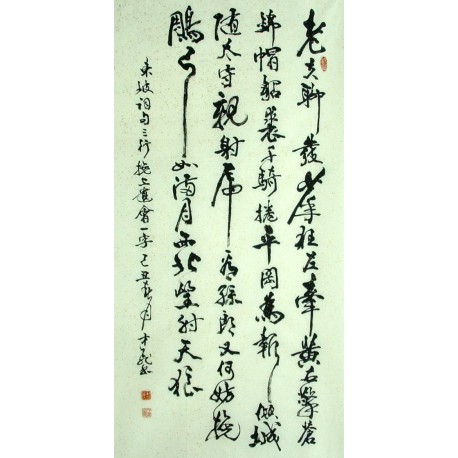 老夫聊發少年狂左牽黃右擎蒼
錦帽貂裘千騎捲平岡為報傾城
隨太守親射虎看孫郎又何妨挽
鵰弓如滿月西北望射天狼
東坡詞句三行挽上遺會一字己丑春月